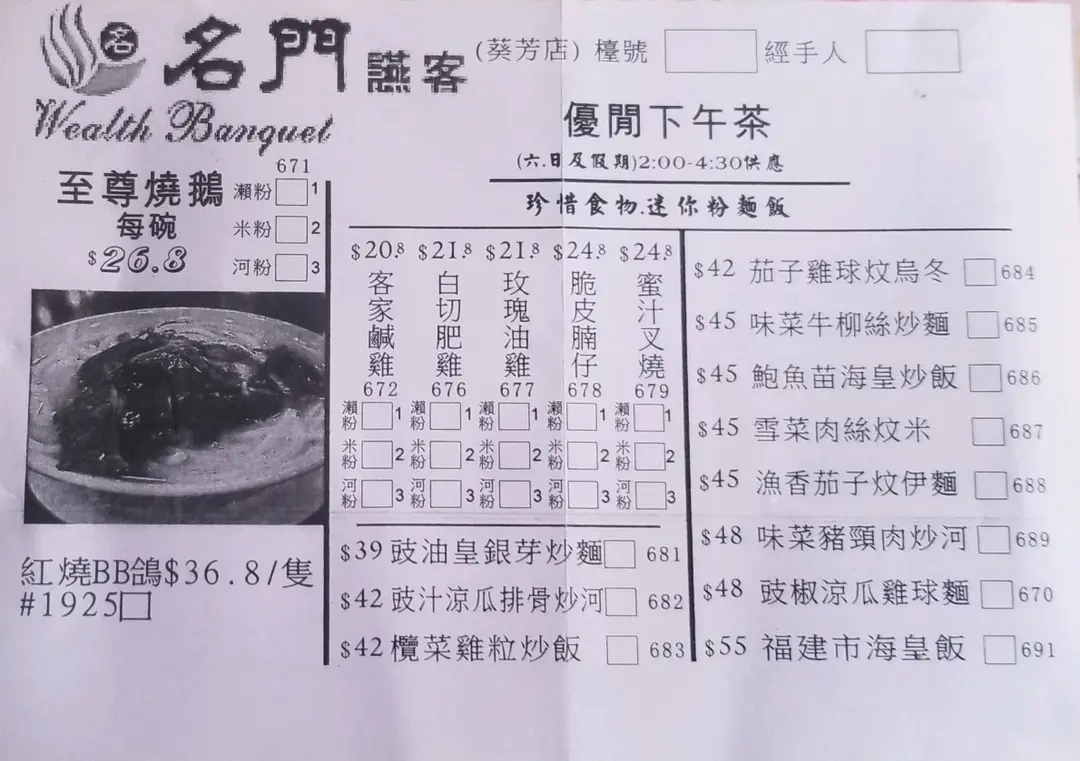 名
名門讌客(葵芳店) 檯號 經手人
Wealth Banquet
優閒下午茶
(六.日及假期)2:00-4:30供應
珍惜食物.迷你粉麵飯
671
至尊燒鵝
每碗
$26.8
瀨粉 1
米粉 2
河粉 3
紅燒BB鴿$36.8/隻
#1925
$20.8 $21.8 $21.8 $24.8 $24.8
客家鹹雞 白切肥雞 玫瑰油雞 脆皮腩仔 蜜汁叉燒
672 676 677 678 679
瀨粉 1 瀨粉 1 瀨粉 1 瀨粉 1 瀨粉 1
米粉 2 米粉 2 米粉 2 米粉 2 米粉 2
河粉 3 河粉 3 河粉 3 河粉 3 河粉 3
$39 豉油皇銀芽炒麵 681
$42 豉汁涼瓜排骨炒河 682
$42 欖菜雞粒炒飯 683
$42 茄子雞球炆烏冬 684
$45 味菜牛柳絲炒麵 685
$45 鮑魚苗海皇炒飯 686
$45 雪菜肉絲炆米 687
$45 漁香茄子炆伊麵 688
$48 味菜豬頸肉炒河 689
$48 豉椒涼瓜雞球麵 670
$55 福建市海皇飯 691